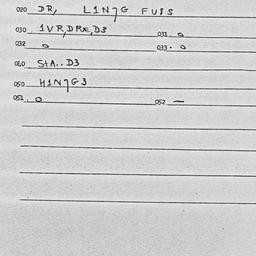 020 DR, LIN7G FUIS
030 1VR,DRE,D3 031 o
032 o 033. o
060 StA.. D3
050 HIN7G3
051. o 052 —